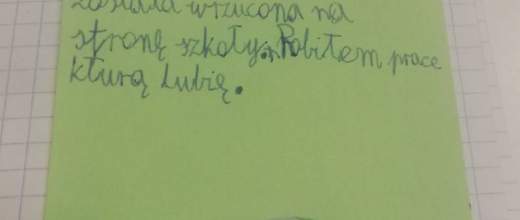 została wrzucona na
stronę szkoły. Robiłem prace
kturą Lubię.